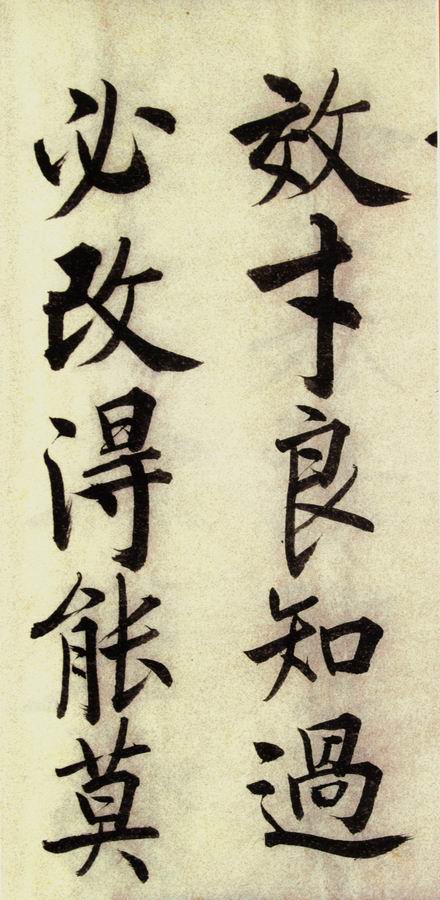 效才良知過
必改得能莫